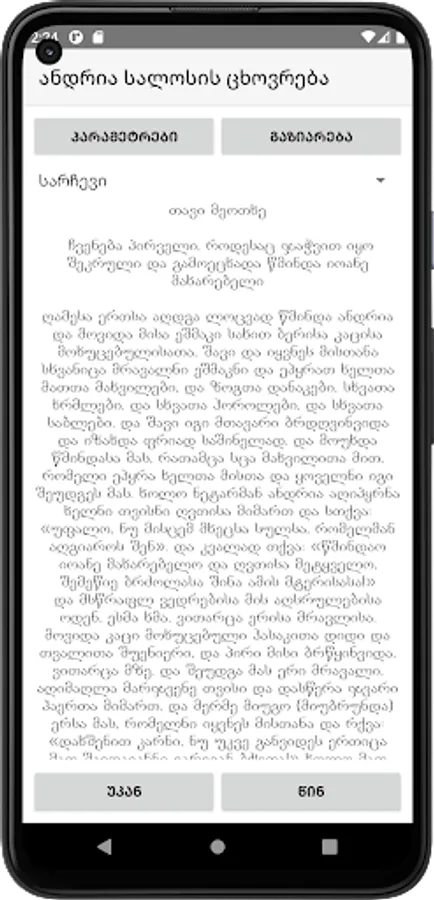 2:24
ანდრია სალოსის ცხოვრება
პარამეტრები
გაზიარება
სარჩევი
თავი მეოთხე
ჩვენება პირველი, როდესაც ჯაჭვით იყო
შეკრული და გამოეცხადა წმინდა იოანე
მახარებელი
ღამესა ერთსა აღდგა ლოცვად წმინდა ანდრია
და მოვიდა მისა ეშმაკი სახით ბერისა კაცისა
მოხუცებულისათა, შავი და იყვნეს მისთანა
სხვანიცა მრავალნი ეშმაკნი და ეპყრათ ხელთა
მათთა მახვილები, და ზოგთა დანაკები, სხვათა
ხრმლები, და სხვათა ჰოროლები, და სხვათა
საბლები, და შავი იგი მთავარი ბრდღვინვიდა
და იზახდა ფრიად საშინელად, და მოუხდა
წმინდასა მას, რათამცა სცა მახვილითა მით,
რომელი ეპყრა ხელთა მისთა და ყოველნი იგი
შეუდგეს მას, ხოლო ნეტარმან ანდრია აღიპყრნა
ხელნი თვისნი ღვთისა მიმართ და სთქვა:
«უფალო, ნუ მისცემ მხეცსა სულსა, რომელმან
აღგიაროს შენ», და კვალად თქვა: «წმინდაო
იოანე მახარებელო და ღვთისა მეტყველო,
შემეწიე ბრძოლასა შინა ამის მტერისასა!»
და მსწრაფლ ვედრებისა მის აღსრულებისა
ოდენ, ესმა ხმა, ვითარცა ერისა მრავლისა,
მოვიდა კაცი მოხუცებული ჰასაკითა დიდი და
თვალითა შუენიერი, და პირი მისი ბრწყინვიდა,
ვითარცა მზე, და შეუდგა მას ერი მრავალი,
აღიმაღლა მარჯვენე თვისი და დასწერა ჯვარი
ჰაერთა მიმართ, და მერმე მიუგო (მიუბრუნდა)
ერსა მას, რომელნი იყვნეს მისთანა და რქვა:
«დახშენით კარნი, ნუ უკვე განვიდეს ერთიცა
უკან
წინ